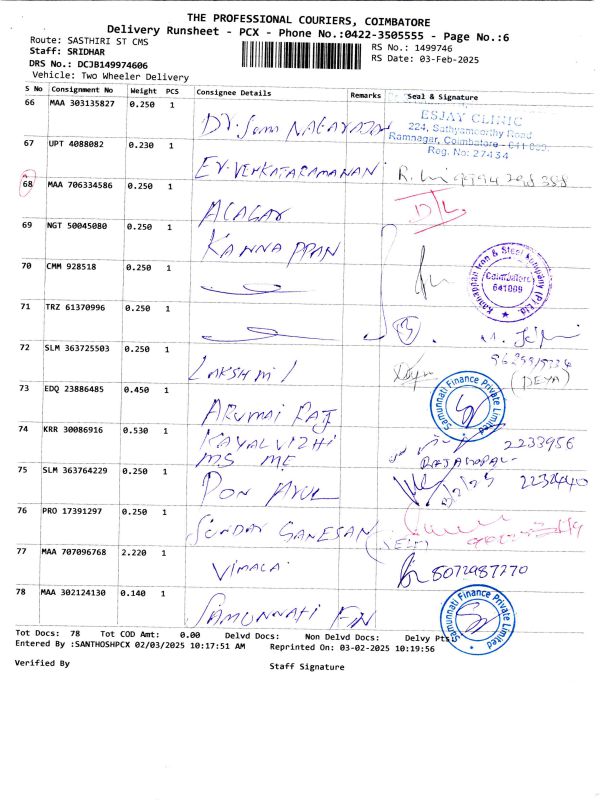 THE PROFESSIONAL COURIERS, COIMBATORE
Delivery Runsheet - PCX - Phone No.:0422-3505555 - Page No.:6
Route: SASTHIRI ST CMS
RS No.: 1499746
Staff: SRIDHAR
RS Date: 03-Feb-2025
DRS No.: DCJB149974606
Vehicle: Two Wheeler Delivery
S No Consignment No Weight PCS Consignee Details Remarks Seal & Signature
66 MAA 303135827 0.250 1
ESJAY CLINIC
224, Sathyamoorthy Road
Ramnagar, Coimbatore - 641 009.
Reg. No: 27434
67 UPT 4088082 0.230 1
ER. VENKATARAMANAN
68 MAA 706334586 0.250 1
ALAGAR
D/L
69 NGT 50045080 0.250 1
KANNAPPAN
Kannappan Iron & Steel Company (P) Ltd.
Coimbatore
641009
70 CMM 928518 0.250 1
71 TRZ 61370996 0.250 1
72 SLM 363725503 0.250 1
LAKSHMI
(DEYA)
73 EDQ 23886485 0.450 1
ARUMAI RAJ
Samunnati Finance Private Limited
74 KRR 30086916 0.530 1
KAYALVIZHI
MS ME
2233956
RAJAGOPAL
75 SLM 363764229 0.250 1
PON
3/2/25
2232440
76 PRO 17391297 0.250 1
SUNDAR GANESAN
77 MAA 707096768 2.220 1
VIMALA
8072987770
78 MAA 302124130 0.140 1
SAMUNNATI FIN
Samunnati Finance Private Limited
Tot Docs: 78 Tot COD Amt: 0.00 Delvd Docs: Non Delvd Docs: Delvy Pts:
Entered By :SANTHOSHPCX 02/03/2025 10:17:51 AM Reprinted On: 03-02-2025 10:19:56
Verified By Staff Signature